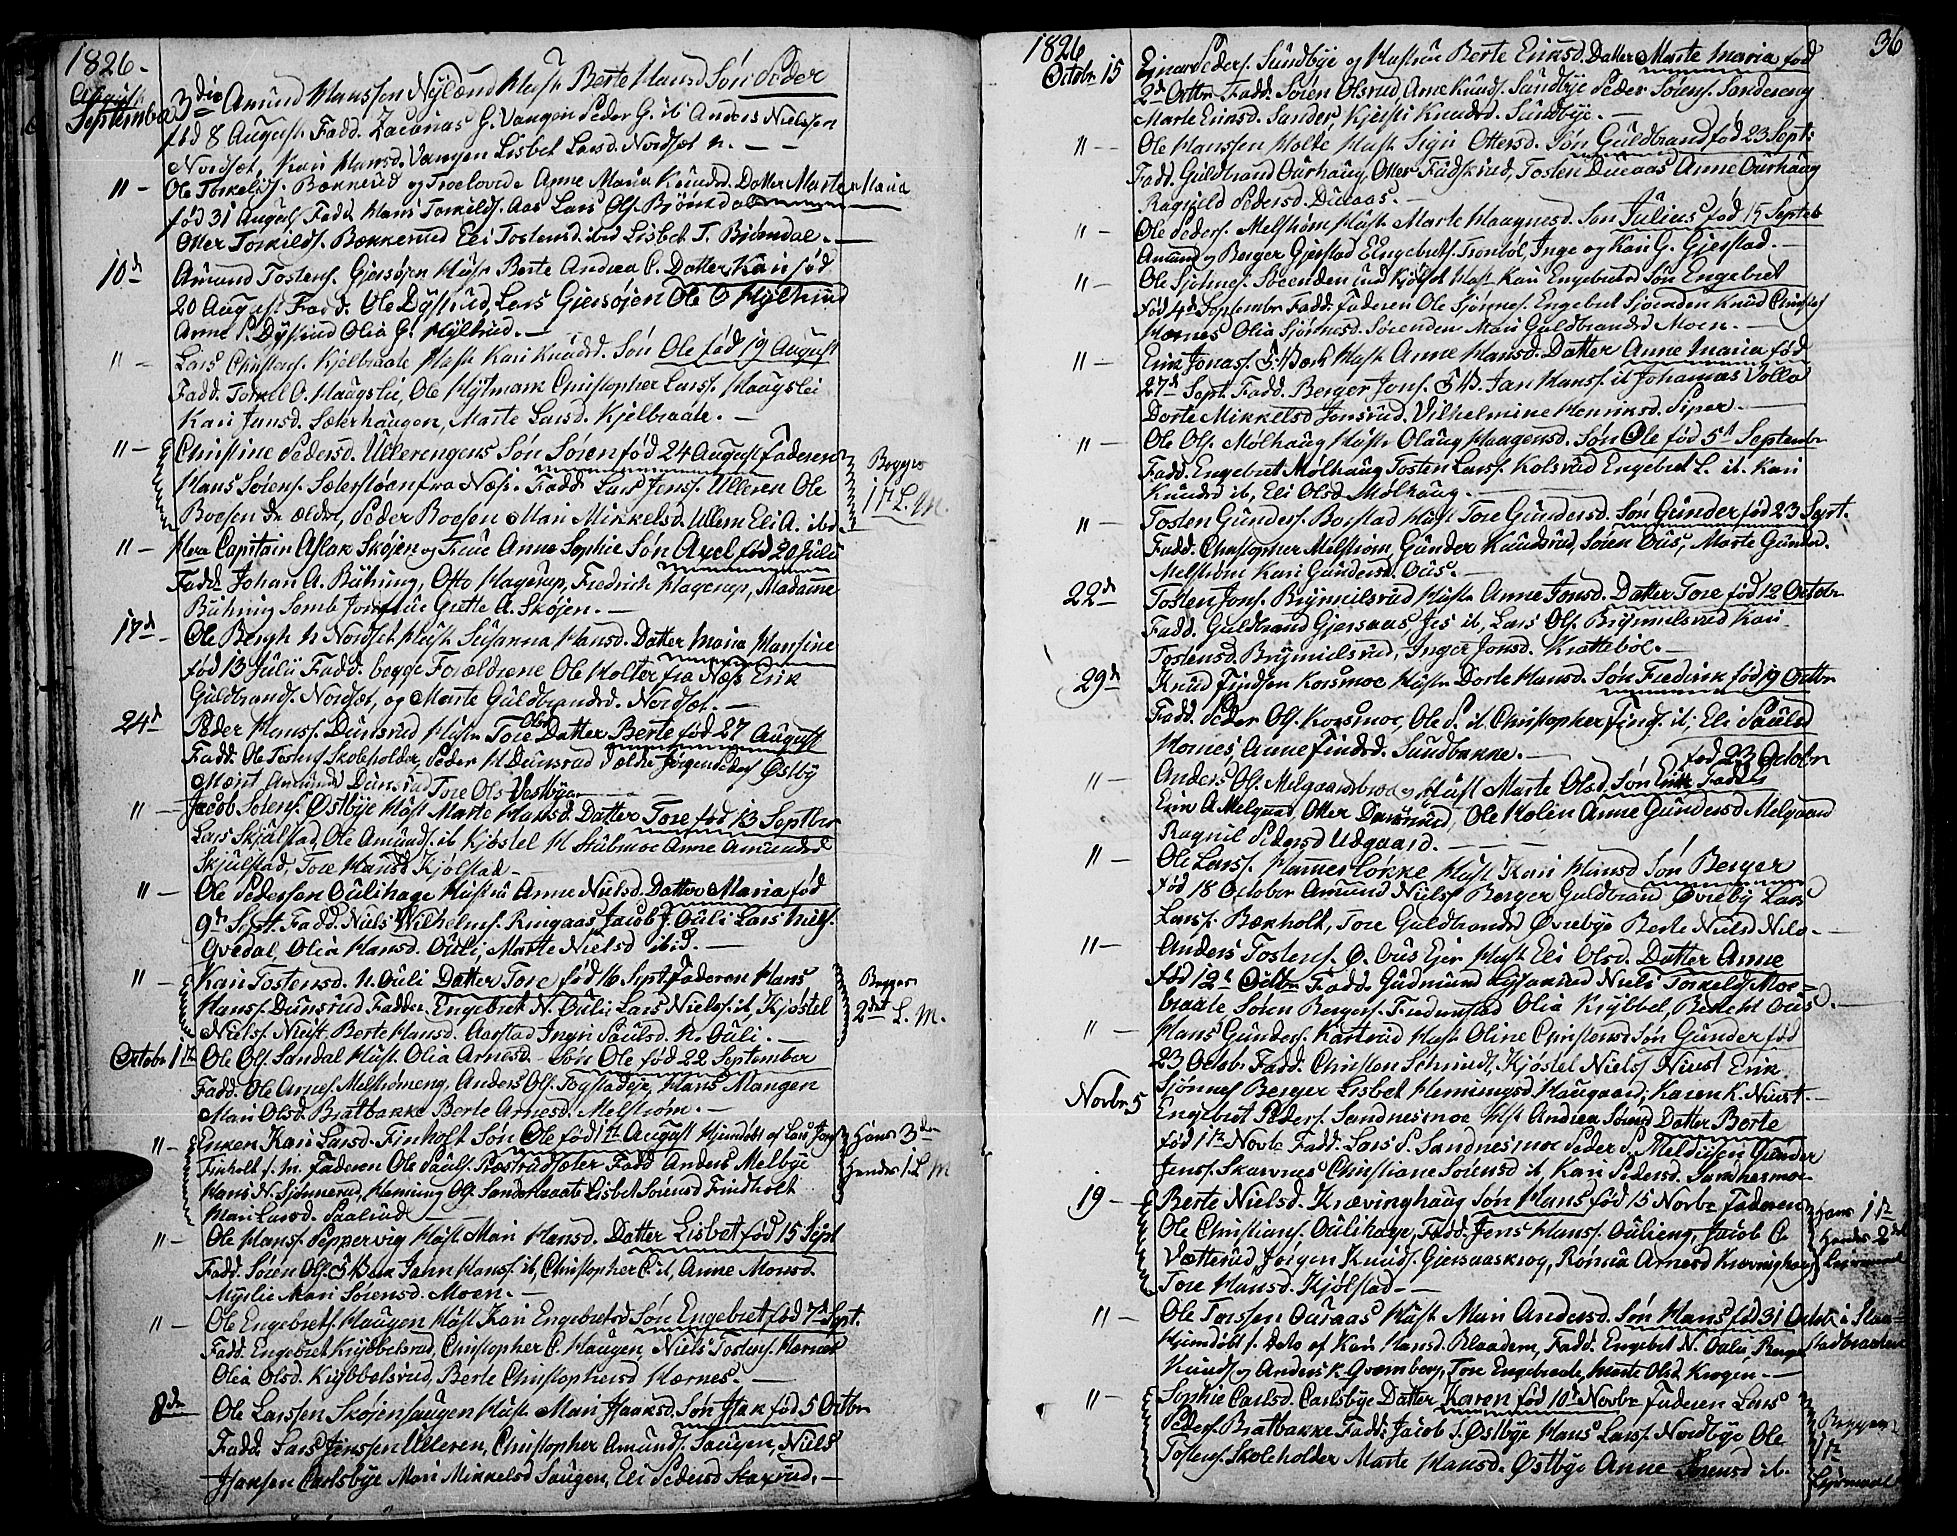 1826.
August
September 3die Amund Hanssen Nylænd Hust. Berte Hansd. Søn Peder
fød 8 August Fadd. Zacarias G. Vangen Peder G. ib Anders Nielssen
Nordset, Kari Hansd. Vangen Lisbet Larsd. Nordset n. —
11 — Ole Torkelds. Bækkerud og Troelovede Anne Maria Knudsd. Datter Marte Maria
fød 31 August Fadd Hans Torkilds. Aas Lars Ols. Bjørndal
Otter Torkilds. Bækkerud Eli Tostensd. ibid Lisbet T. Bjørndal. —
10d Amund Tostens. Gjersøjen Hust. Berte Andrea C. Datter Kari fød
20 August Fadd. Ole Dystrud, Lars Giersøjen Ole O Hyltrud
Anne P. Dystrud Olia G. Hyltrud. —
11 — Lars Christens. Kjelbraate Hust. Kari Knudsd. Søn Ole fød 19 August
Fadd. Torkel O. Haugslie, Ole Nytmark Christopher Larss. Haugslei
Kari Jensd. Sæterhaugen, Marte Larsd. Kjelbraate. —
11 — Christine Pedersd. Ullerengens Søn Søren fød 24 August Faderen
Hans Sørens. Sæterstøen fra Næs. Fadd Lars Jenss. Ulleren Ole
Boesen den ældre, Peder Boesen Mari Mikkelsd. Ullern Eli A. ibd
Begges
1ste L. M.
11 — Herr Capitain Aslak Skøjen og Frue Anne Sophie Søn Axel fød 20 Julii
Fadd. Johan A. Bühring, Otto Hagerup, Fredrich Hagerup, Madamme
Bühring Semb Jomfrue Grette A. Skøjen. —
17d Ole Bergh n Nordset Hust. Susanna Hansd. Datter Maria Hansine
fød 13 Julii Fadd. begge Forældrene Ole Holter fra Næs Erik
Guldbrands. Nordset, og Marte Guldbrandsd. Nordset. —
24d Peder Hanss. Dunsrud Hustr. Tore Olsd Datter Berte fød 27 August
Fadd. Ole Tostens Skoleholder, Peder H Dunsrud Jørgen Peders Østby
Amunds Dunsrud Tore Ols Vestbye
11 — Jacob Sørens. Østbye Hust. Marte Hansd. Datter Tore fød 13 Septbr
Lars Skjulstad, Ole Amunds. ib Kjøstel H Stubmoe Anne Amundsd
Skjulstad, Tore Hansd Kjølstad —
11 — Ole Pedersen Oulihage Hustru Anne Nielsd. Datter Maria fød
9de Sept. Fadd. Niels Wilhelms. Ringaas Jacob J. Ouli Lars Niels.
Gvedal, Olia Hansd. Ouli, Marte Nielsd ibid. —
11 — Kari Tostensd. N. Ouli Datter Tore fød 16 Sept. Faderen Hans
Hans. Dunsrud Fadder Engebret N. Ouli Lars Niels. it, Kjøstel
Niels. Niust Berte Hansd. Aarstad Ingri Paulsd. N. Ouli. —
Begges
2det L. M.
Octobr 1ste Ole Ols. Sandal Hust. Olia Arnesd. Søn Ole fød 22 September
Fadd. Ole Arnes. Melstrømeng, Anders Ols. Togstadeje, Hans Mangen
Mari Olsd. Bratbakke Berte Arnesd. Melstrøm. —
11 — Enken Kari Larsd. Finholt Søn Ole fød 1ste August Hjemdøbt af Lars Jens
Finholt Faderen Ole Pauls. Fadd Anders Melbye
Hans N. Sjønnerud, Henning Ols. Sanderbraate Lisbet Sørensd Findholt
Mari Larsd. Paalsrud
Hans 3die
Hendes 1 L M
11 — Ole Hans. Peppervig Hust. Mari Hansd. Datter Lisbet fød 15 Sept
Fadd. Søren Ols. S Bæk Jann Hanss. it, Christopher C. it, Anne Monsd.
Myrlie Mari Sørensd. Moen. —
11 — Ole Engebrets. Haugen Hust Kari Engebretsd Søn Engebret fød 7de Sept.
Fadd. Engebret Krybbelsrud, Christopher C. Haugen, Niels Tostens. Hornes
Olia Olsd. Krybbelsrud, Berte Christophersd Hornes. —
8de Ole Larssen Skøjenhaugen Hust. Mari Isaksd. Søn Isak fød 5 Octbr
Fadd. Lars Jenssen Ulleren, Christopher Amunds. Haugen, Niels
Hansen Carlsbye Mari Mikkelsd Haugen, Eli Pedersd Staxrud. —
1826
36
Octobr 15 Ejnar Peders. Sundbye og Hustrue Berte Eriksd. Datter Marte Maria fød
2d Octbr Fadd. Søren Olsrud Arne Knuds. Sundbye Peder Sørens. Sandereng
Marte Eriksd. Sander, Kjersti Knudsd. Sundbye. —
11 — Ole Hanssen Holte Hust. Sigri Ottersd. Søn Guldbrand fød 23 Sept:
Fadd. Guldbrand Ourhaug, Otter Fudskrud, Tosten Ducaas Anne Ourhaug
Ragnild Pedersd. Ducaas. —
11 — Ole Peders. Melstrøm Hust. Marte Haagensd. Søn Julius fød 15 Septeb
Amund og Berger Gjerstad E Engebrets. Tronbøl, Inge og Kari G. Gjerstad. —
11 — Ole Sjønnes. Soeenden Hust Kari Engebretsd Søn Engebret
fød 4d Septembr Fadd. Faderen Ole Sjønnes. Engebret Sjørenden Knud Christop
Hornes Olia Sjønnesd. Sørenden Mari Guldbrandsd Moen. —
11 — Erik Jonas. S. Bæk Hust. Anne Hansd. Datter Anne Maria fød
27d Sept. Fadd. Berger Jons. S. B. Jan Hanss. it Johannes Volla
Dorte Mikkelsd Jonsrud. Vilhelmine Henriksd. Siper. —
11 — Ole Ols. Mølhaug Hust. Olaug Haagensd. Søn Ole fød 5te Septembr
Fadd. Engebret Mølhaug Tosten Larss. Kolsrud Engebret L. it. Kari
Knudsd it, Eli Olsd. Mølhaug. —
11 — Tosten Gunders. Borstad Hust Tore Gundersd. Søn Gunder fød 23 Sept.
Fadd. Christopher Melstrøm, Gunder Knudsrud, Søren Ous, Marte Gundsd.
Melstrøm Kari Gundersd. Ous. —
22de Tosten Jons. Brynnilsrud Hustr. Anne Jonsd. Datter Tore fød 12 Octobr
Fadd. Guldbrand Gjersaas Jes it, Lars Ols. Brynnilsrud Kari
Tostensd. Brynnilsrud, Inger Jonsd. Krattebøl. —
29de Knud Findsen Korsmoe Hustr. Dorte Hansd. Søn Fredrik fød 19 Octbr
Fadd. Peder Ols. Korsmoe, Ole P. it Christopher Finds. it, Eli Paulsd
Hornes, Anne Findsd. Sundbakke. —
11 — Anders Ols. Melgaardbroe og Hust Marte Olsd. Søn Erik fød 23 Octobr Fadder
Erik A Melgaard, Otter , Ole Holen Anne Gundersd Melgaard
Ragnil Pedersd Udgaard. —
11 — Ole Larss. Hammerløkke Hust Kari Hansd Søn Berger
fød 18 October Amund Niels. Berger Guldbrand Øvreby Lars
Larss. Bæxholt, Tore Guldbrandsd Øvrebye Berte Nielsd Nilo. —
11 — Anders Tostens. O. Ous Ejer Hust Eli Olsd. Datter Anne
fød 12te Octbr Fadd. Gudmund Lysaxrud Niels Torkelds Moe-
braate Søren Bergers. Olia Krybbel, Berte H Ous. —
11 — Hans Gunders. Karterud Hust Oline Christensd Søn Gunder fød
23 Octobr Fadd. Christen Schmidt, Kjøstel Niels Niust Erik
Sjønnes Berger Lisbet Hemmingsd Haugaard, Karen K. Niust. —
Novbr 5 Engebret Peders. Sandnesmoe Hst Andrea Sørensd Datter Berte
fød 1ste Novbr Fadd. Lars P. Sandnesmoe Peder P. Meldisen Gunder
Jenss. Skarnes Christiane Sørensd it Kari Pedersd. Sandnesmoe —
19 — Berte Nielsd. Krævinghaug Søn Hans fød 15 Novbr Faderen
Ole Christians. Oulihage, Fadd. Jens Hans. Oulieng, Jacob C.
Vætterud Jørgen Knuds. Gjersaaskrog, Romia Arnesd Krævinghaug
Tore Hansd. Kjølstad —
Hans 1ste
Hendes 2det
Lejermaal
11 — Ole Torssen Ouraas Hust Mari Andersd. Søn Hans fød 31 Octobr
Hjemdøbt f. Dato af Kari Hansd. Blaadern, Fadd. Engebret N. Oulie, Berger
Knuds og Anders K. Grønberg, Tore Engebrets, Marte Olsd. Krogen —
11 — Sophie Carlsd. Carlsbye Datter Karen fød 10de Novbr Faderen Lars
Peders. Bratbakke Fadd. Jacob S. Østbye Hans Larss. Nordbye Ole
Tostens. Skoleholder Marte Hansd. Østbye Anne Sørensd it.
Begges
1ste
Lejermaal